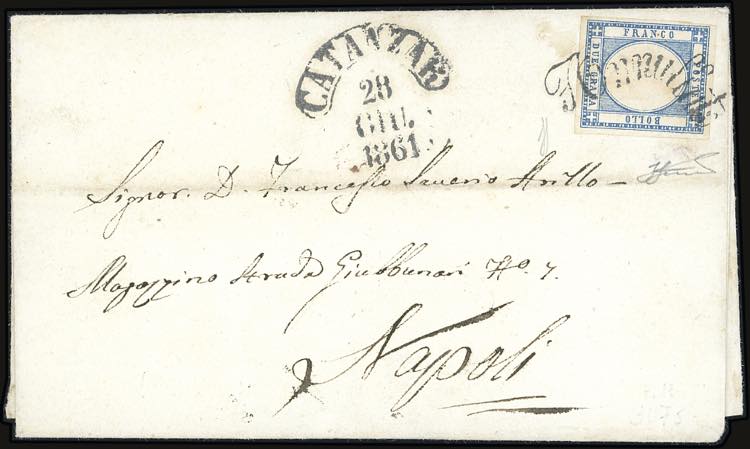 FRANCO
POSTE
DUE GRANA
BOLLO
CATANZARO
28
GIU.
1861
Signor. D. Francesco Saverio Arillo
Magazzino Strada Giubbonari No. 7.
Napoli